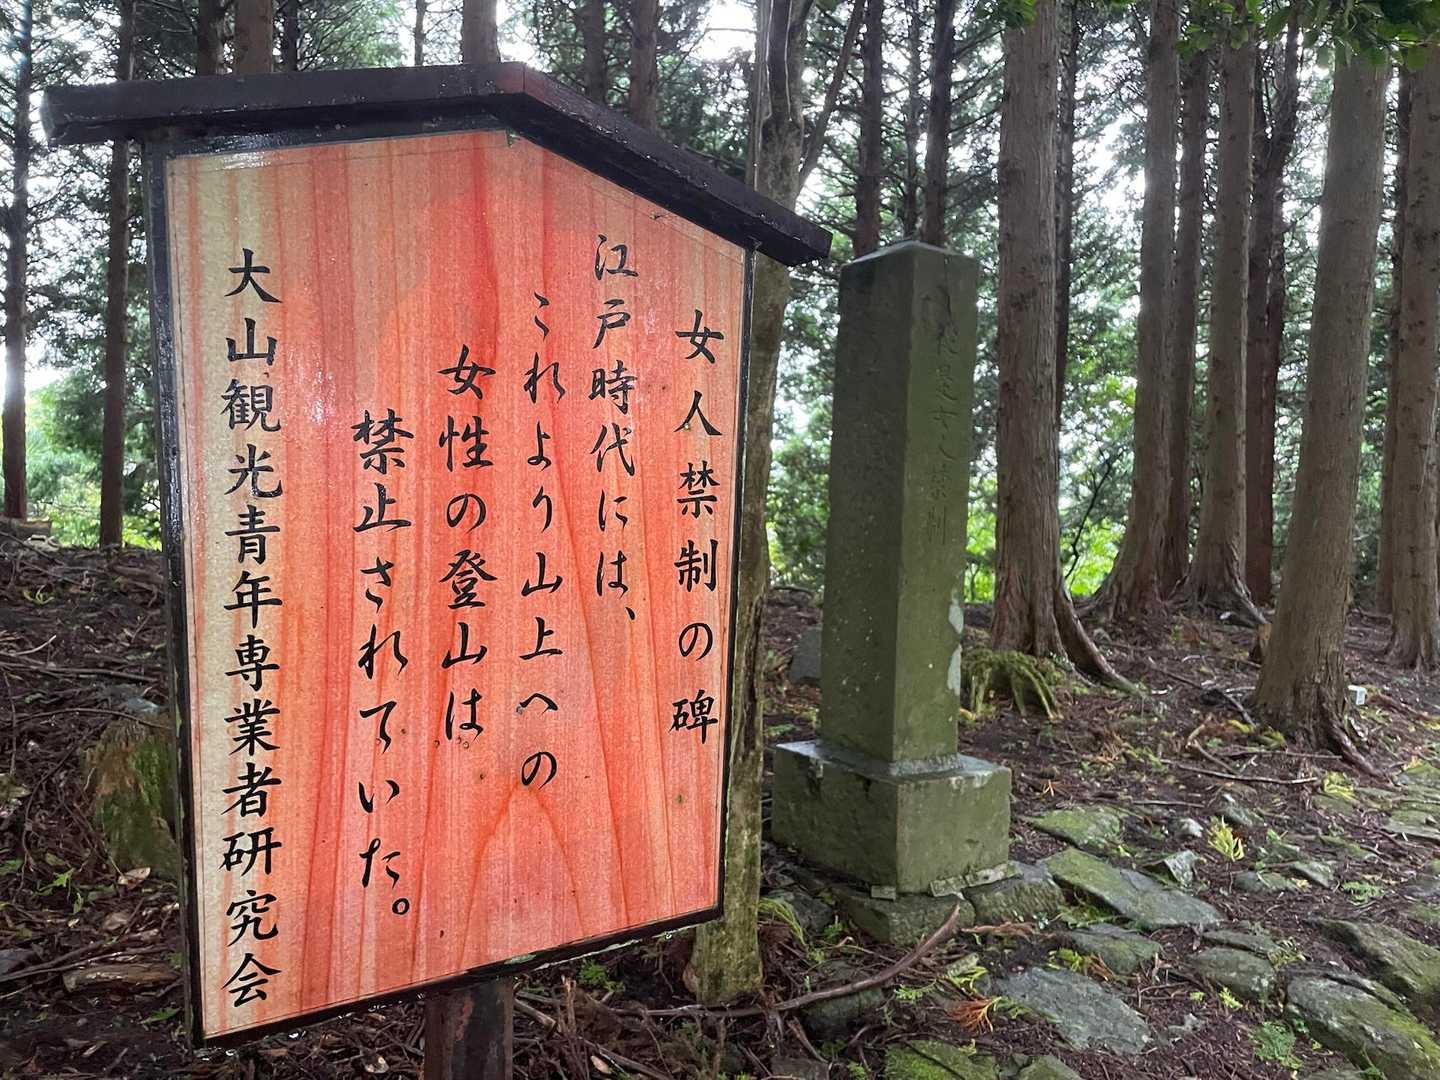 女人禁制の碑
江戸時代には、
これより山上への
女性の登山は
禁止されていた。
大山観光青年専業者研究会
従是女人禁制